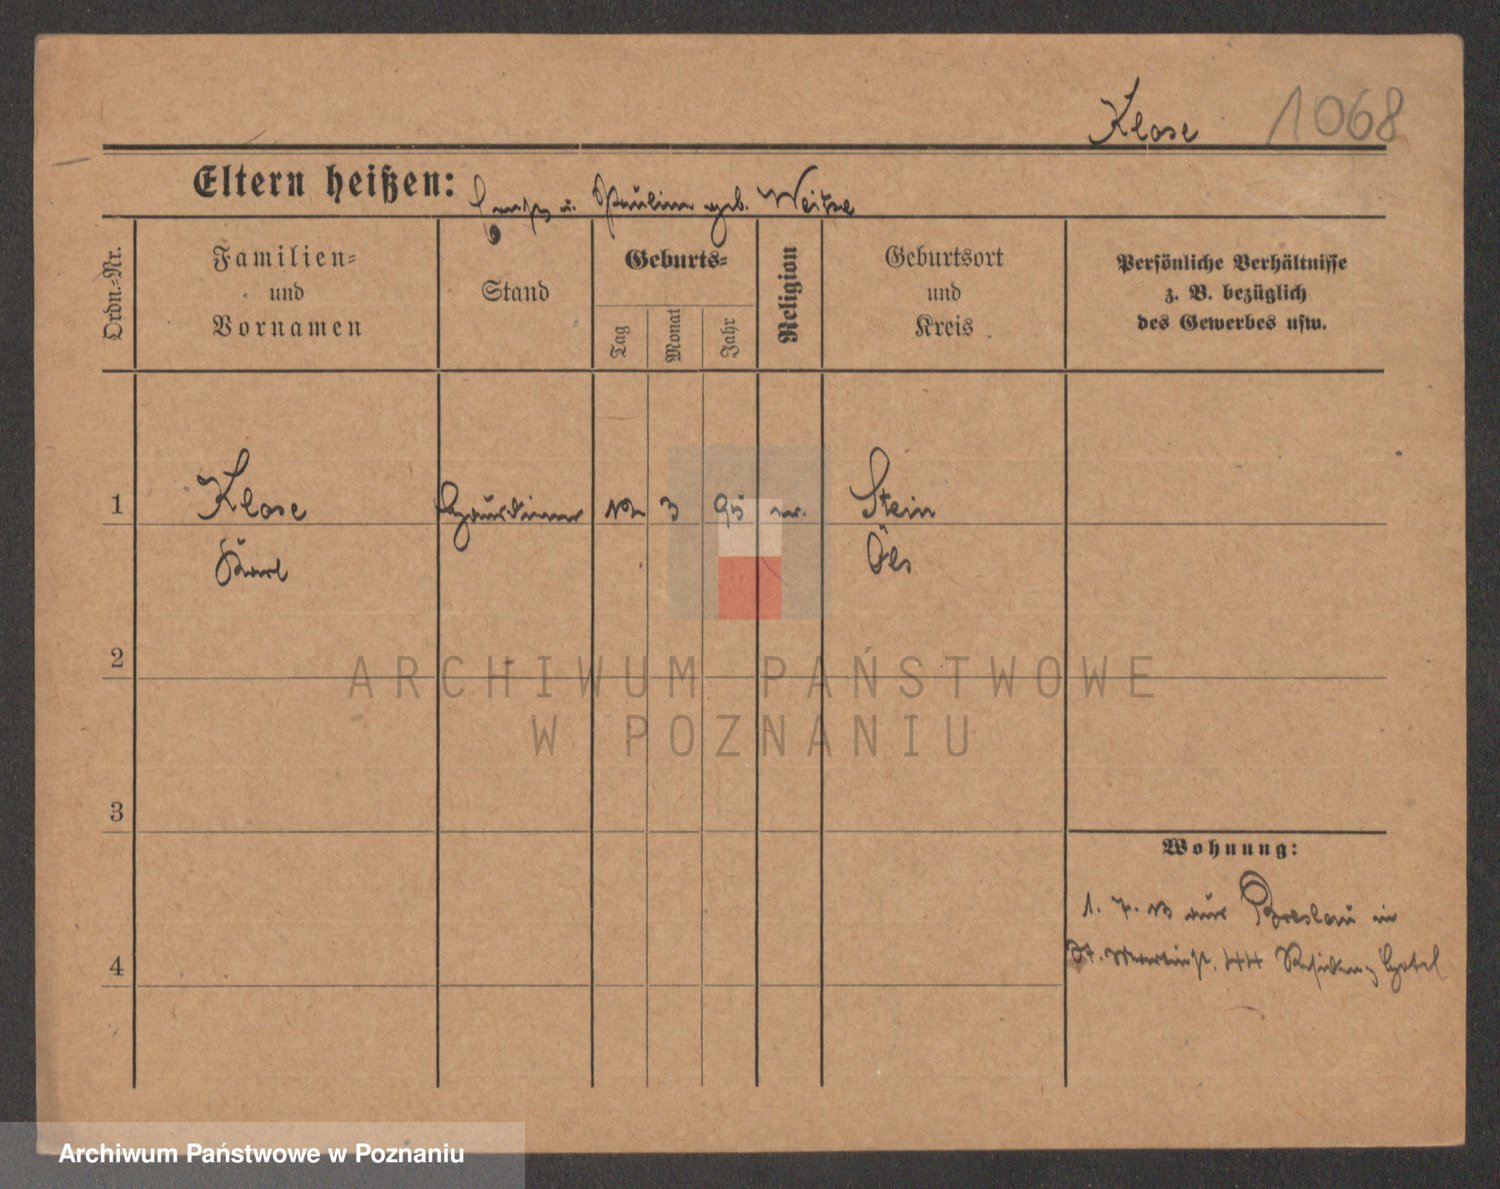 Klose 1068
Eltern heißen: u. Pauline geb. Weitzel
Ordn.-Nr.
Familien-
und
Vornamen
Stand
Geburts-
Tag
Monat
Jahr
Religion
Geburtsort
und
Kreis
Persönliche Verhältnisse
z. B. bezüglich
des Gewerbes usw.
1 Klose Hausdiener 3 95 Stein
Karl Öls
2
ARCHIWUM PAŃSTWOWE
W POZNANIU
3
Wohnung:
1. 7. 13 aus Breslau in
4 St. Martinst. 44 Residenz Hotel
Archiwum Państwowe w Poznaniu